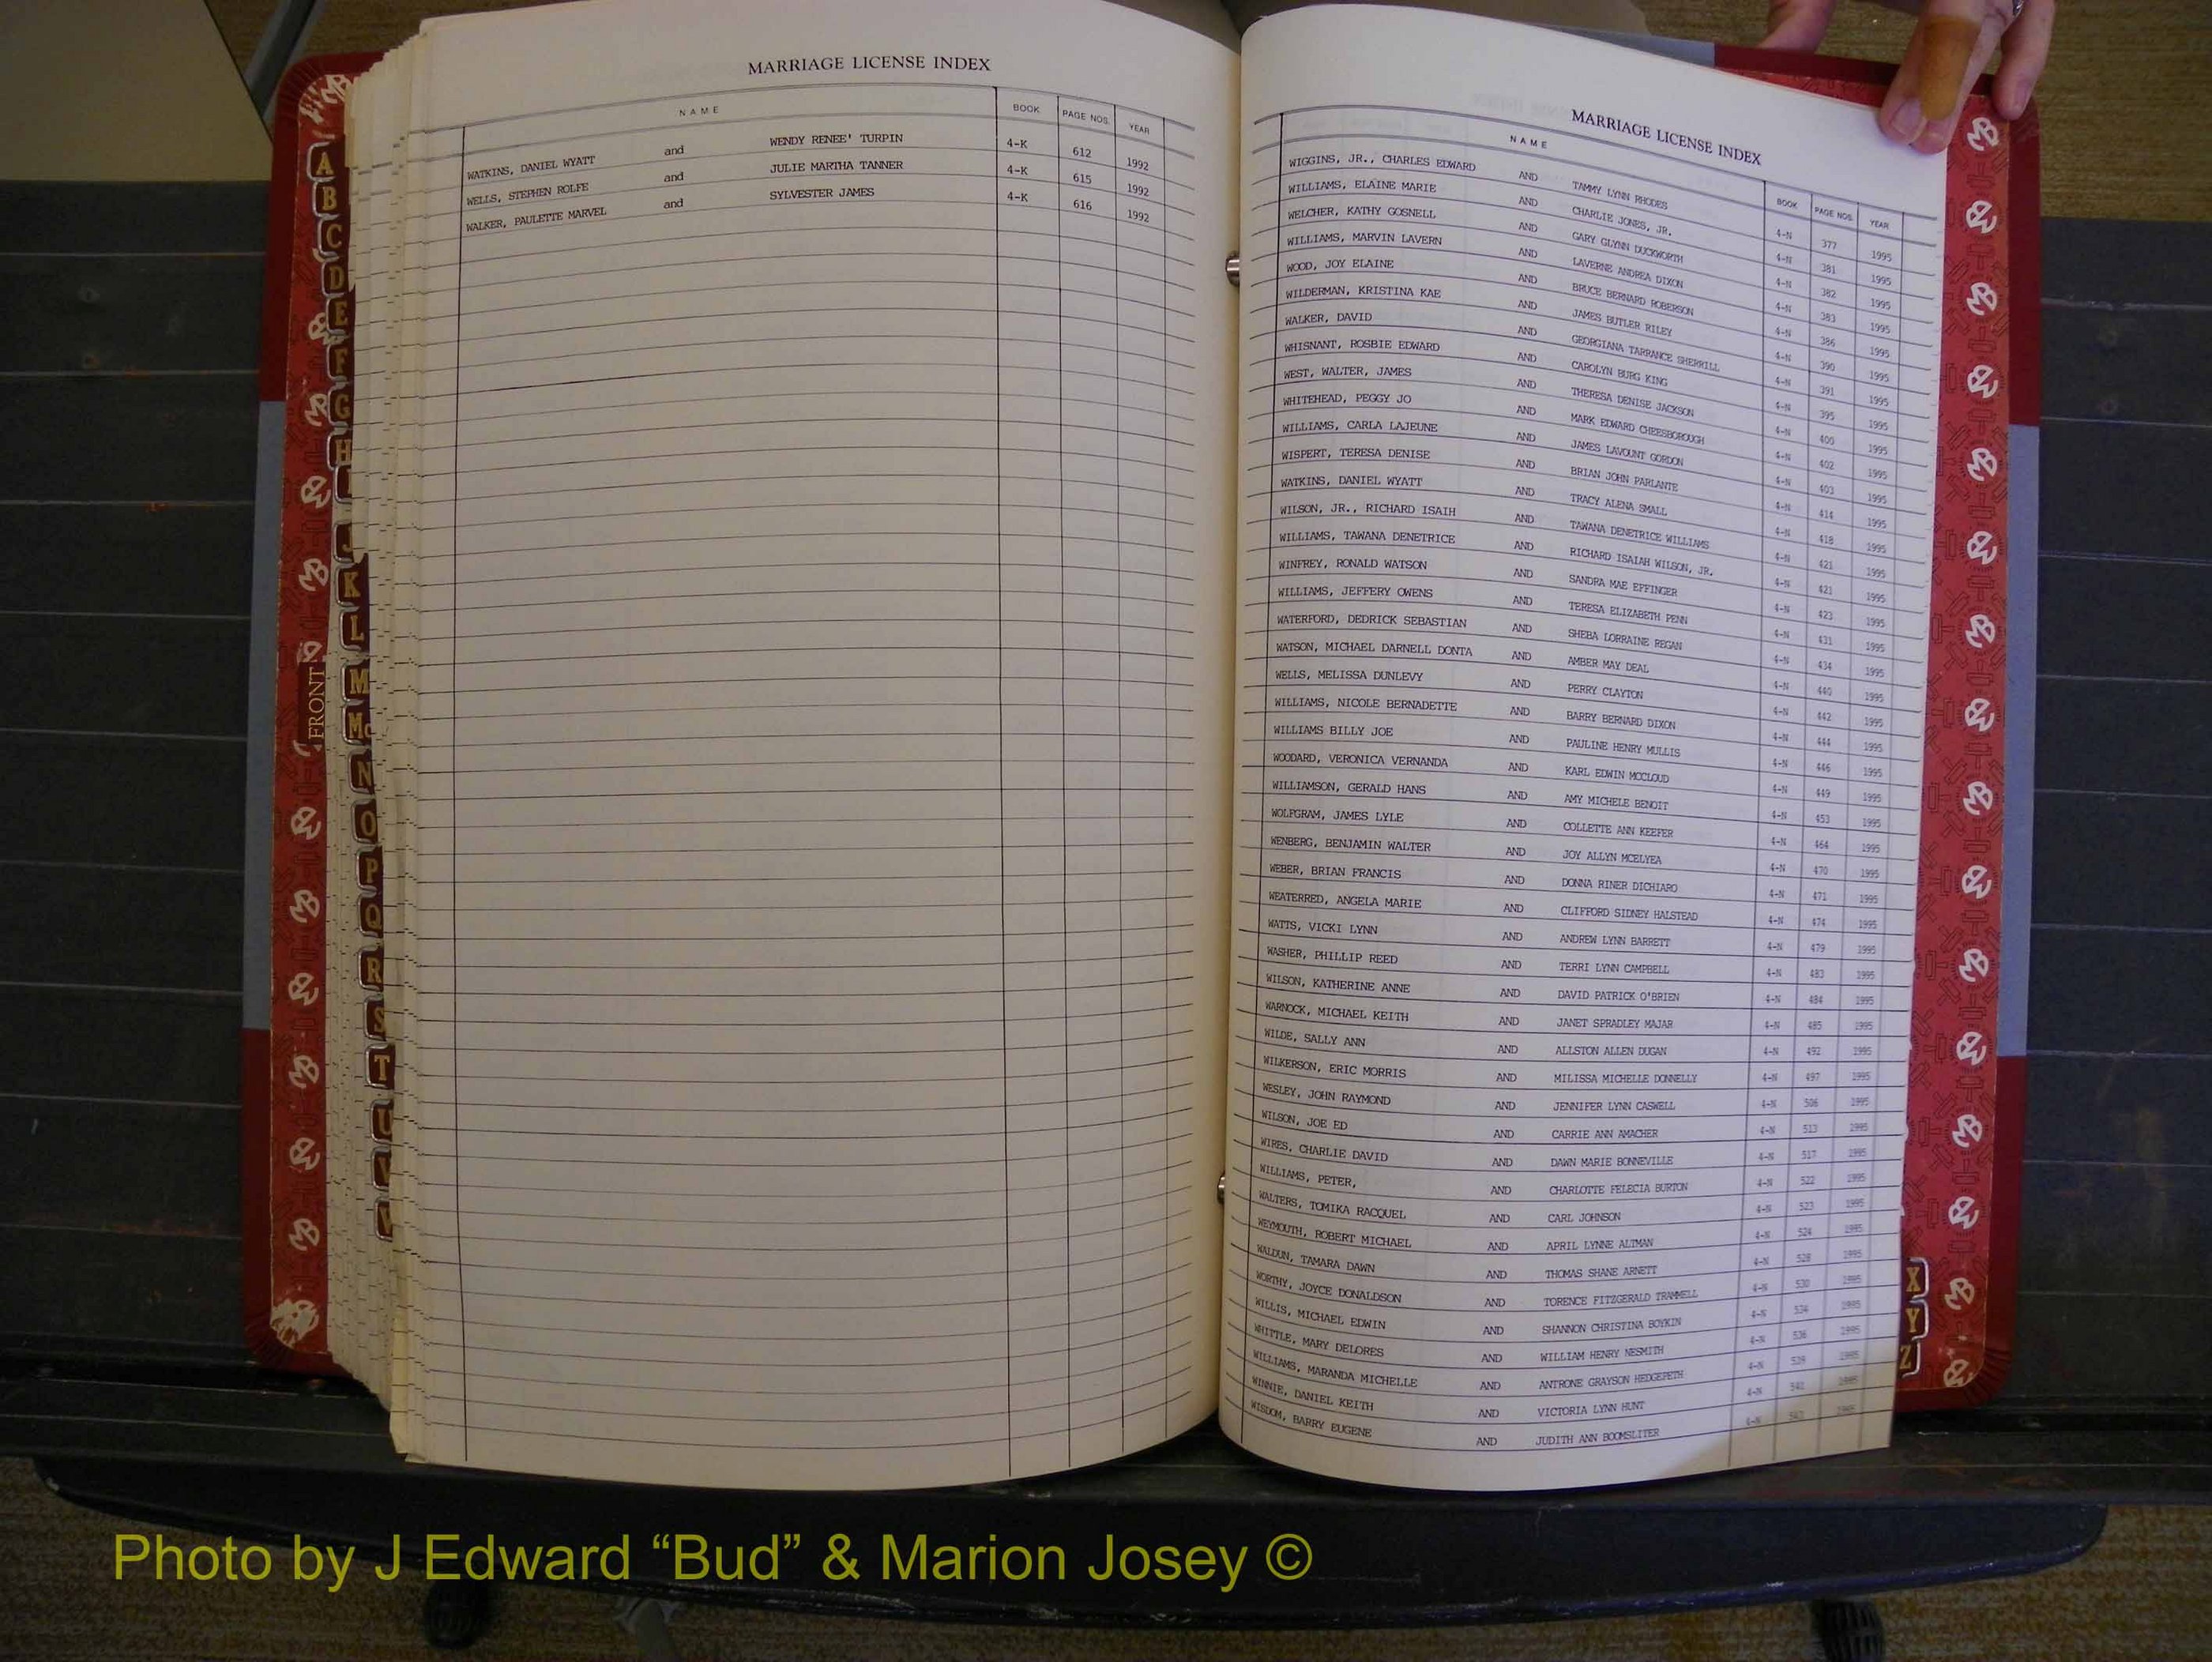 MARRIAGE LICENSE INDEX
NAME BOOK PAGE NOS. YEAR
WATKINS, DANIEL WYATT and WENDY RENEE' TURPIN 4-K 612 1992
WELLS, STEPHEN ROLFE and JULIE MARTHA TANNER 4-K 615 1992
WALKER, PAULETTE MARVEL and SYLVESTER JAMES 4-K 616 1992
A
B
C
D
E
F
G
H
J
K
L
M
Mc
N
O
P
Q
R
S
T
U
V
FRONT
MARRIAGE LICENSE INDEX
NAME BOOK PAGE NOS. YEAR
WIGGINS, JR., CHARLES EDWARD AND TAMMY LYNN RHODES 4-N 377 1995
WILLIAMS, ELAINE MARIE AND CHARLIE JONES, JR. 4-N 381 1995
WELCHER, KATHY GOSNELL AND GARY GLYNN DUCKWORTH 4-N 382 1995
WILLIAMS, MARVIN LAVERN AND LAVERNE ANDREA DIXON 4-N 383 1995
WOOD, JOY ELAINE AND BRUCE BERNARD ROBERSON 4-N 386 1995
WILDERMAN, KRISTINA KAE AND JAMES BUTLER RILEY 4-N 390 1995
WALKER, DAVID AND GEORGIANA TARRANCE SHERRILL 4-N 391 1995
WHISNANT, ROSBIE EDWARD AND CAROLYN BURG KING 4-N 395 1995
WEST, WALTER, JAMES AND THERESA DENISE JACKSON 4-N 400 1995
WHITEHEAD, PEGGY JO AND MARK EDWARD CHEESBOROUGH 4-N 402 1995
WILLIAMS, CARLA LAJEUNE AND JAMES LAVOUNT GORDON 4-N 403 1995
WISPERT, TERESA DENISE AND BRIAN JOHN PARLANTE 4-N 414 1995
WATKINS, DANIEL WYATT AND TRACY ALENA SMALL 4-N 418 1995
WILSON, JR., RICHARD ISAIH AND TAWANA DENETRICE WILLIAMS 4-N 421 1995
WILLIAMS, TAWANA DENETRICE AND RICHARD ISAIAH WILSON, JR. 4-N 421 1995
WINFREY, RONALD WATSON AND SANDRA MAE EFFINGER 4-N 423 1995
WILLIAMS, JEFFERY OWENS AND TERESA ELIZABETH PENN 4-N 431 1995
WATERFORD, DEDRICK SEBASTIAN AND SHEBA LORRAINE REGAN 4-N 434 1995
WATSON, MICHAEL DARNELL DONTA AND AMBER MAY DEAL 4-N 440 1995
WELLS, MELISSA DUNLEVY AND PERRY CLAYTON 4-N 442 1995
WILLIAMS, NICOLE BERNADETTE AND BARRY BERNARD DIXON 4-N 444 1995
WILLIAMS BILLY JOE AND PAULINE HENRY MULLIS 4-N 446 1995
WOODARD, VERONICA VERNANDA AND KARL EDWIN MCCLOUD 4-N 449 1995
WILLIAMSON, GERALD HANS AND AMY MICHELE BENOIT 4-N 453 1995
WOLFGRAM, JAMES LYLE AND COLLETTE ANN KEEFER 4-N 464 1995
WENBERG, BENJAMIN WALTER AND JOY ALLYN MCELYEA 4-N 470 1995
WEBER, BRIAN FRANCIS AND DONNA RINER DICHIARO 4-N 471 1995
WEATERRED, ANGELA MARIE AND CLIFFORD SIDNEY HALSTEAD 4-N 474 1995
WATTS, VICKI LYNN AND ANDREW LYNN BARRETT 4-N 479 1995
WASHER, PHILLIP REED AND TERRI LYNN CAMPBELL 4-N 483 1995
WILSON, KATHERINE ANNE AND DAVID PATRICK O'BRIEN 4-N 484 1995
WARNOCK, MICHAEL KEITH AND JANET SPRADLEY MAJAR 4-N 485 1995
WILDE, SALLY ANN AND ALLSTON ALLEN DUGAN 4-N 492 1995
WILKERSON, ERIC MORRIS AND MILISSA MICHELLE DONNELLY 4-N 497 1995
WESLEY, JOHN RAYMOND AND JENNIFER LYNN CASWELL 4-N 506 1995
WILSON, JOE ED AND CARRIE ANN AMACHER 4-N 513 1995
WIRES, CHARLIE DAVID AND DAWN MARIE BONNEVILLE 4-N 517 1995
WILLIAMS, PETER, AND CHARLOTTE FELECIA BURTON 4-N 522 1995
WALTERS, TOMIKA RACQUEL AND CARL JOHNSON 4-N 523 1995
WEYMOUTH, ROBERT MICHAEL AND APRIL LYNNE ALTMAN 4-N 524 1995
WALDUN, TAMARA DAWN AND THOMAS SHANE ARNETT 4-N 528 1995
WORTHY, JOYCE DONALDSON AND TORENCE FITZGERALD TRAMMELL 4-N 530 1995
WILLIS, MICHAEL EDWIN AND SHANNON CHRISTINA BOYKIN 4-N 534 1995
WHITTLE, MARY DELORES AND WILLIAM HENRY NESMITH 4-N 536 1995
WILLIAMS, MARANDA MICHELLE AND ANTRONE GRAYSON HEDGEPETH 4-N 539 1995
WINNIE, DANIEL KEITH AND VICTORIA LYNN HUNT 4-N 1995
WISDOM, BARRY EUGENE AND JUDITH ANN BOOMSLITER 4-N 1995
X
Y
Z
Photo by J Edward “Bud” & Marion Josey ©